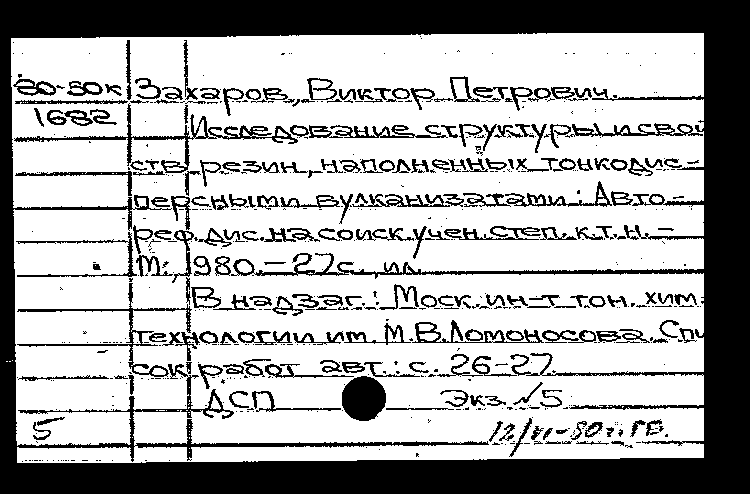 80-50к Захаров, Виктор Петрович.
1682
Исследование структуры и свой
ств резин, наполненных тонкодис-
персными вулканизатами : Авто-
реф. дис. на соиск. учен. степ. к.т.н. -
М., 1980. - 27 с., ил.
В надзаг.: Моск. ин-т тон. хим.
технологии им. М.В.Ломоносова. Спи
сок работ авт.: с. 26-27.
ДСП Экз. №5
5 12/VI-80 г.